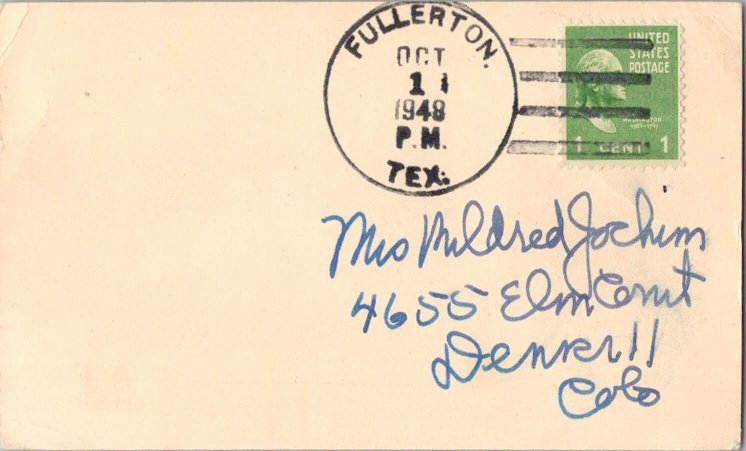 FULLERTON.
OCT
1 1
1948
P.M.
TEX.
UNITED
STATES
POSTAGE
WASHINGTON
1 CENT 1
Mrs Mildred Jochim
4655 Elm Court
Denver 11
Colo